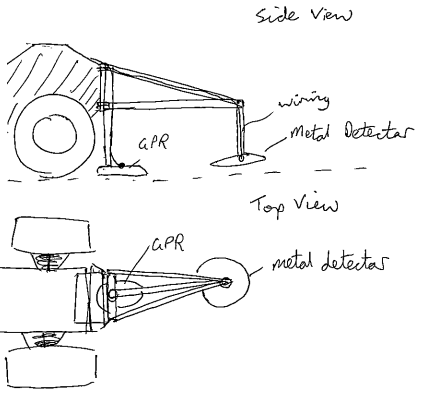 Side View
wiring
Metal Detector
GPR
Top View
GPR
metal detector